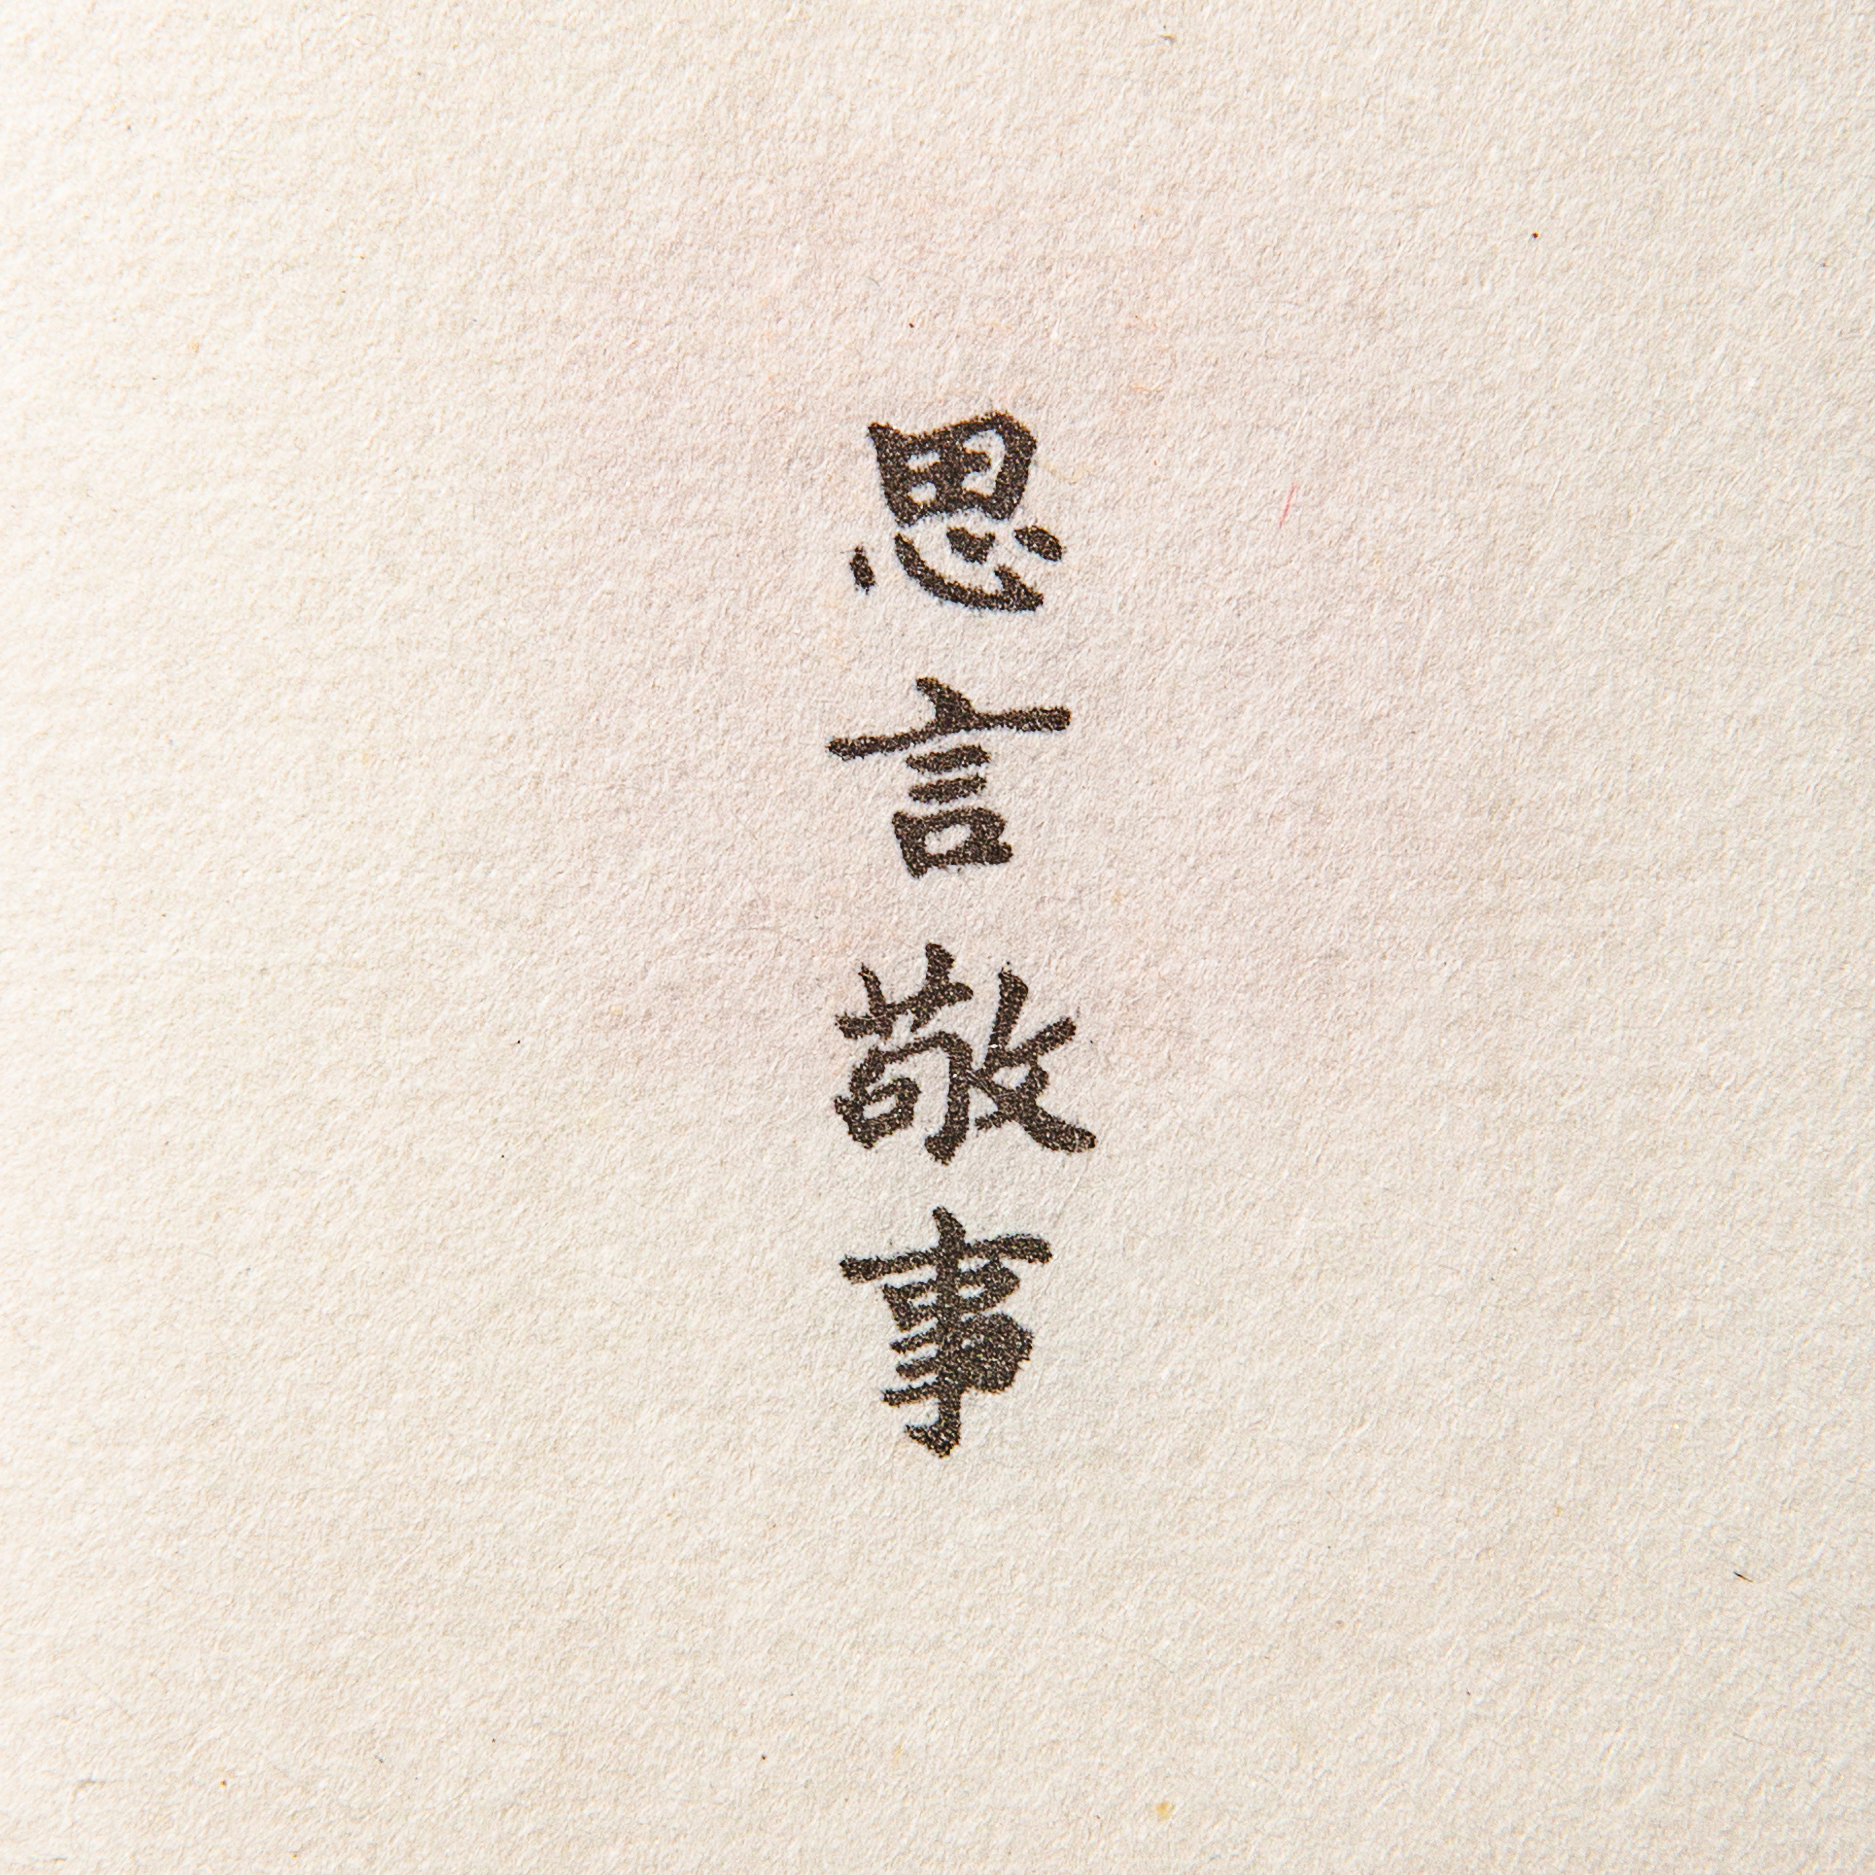 思言敬事